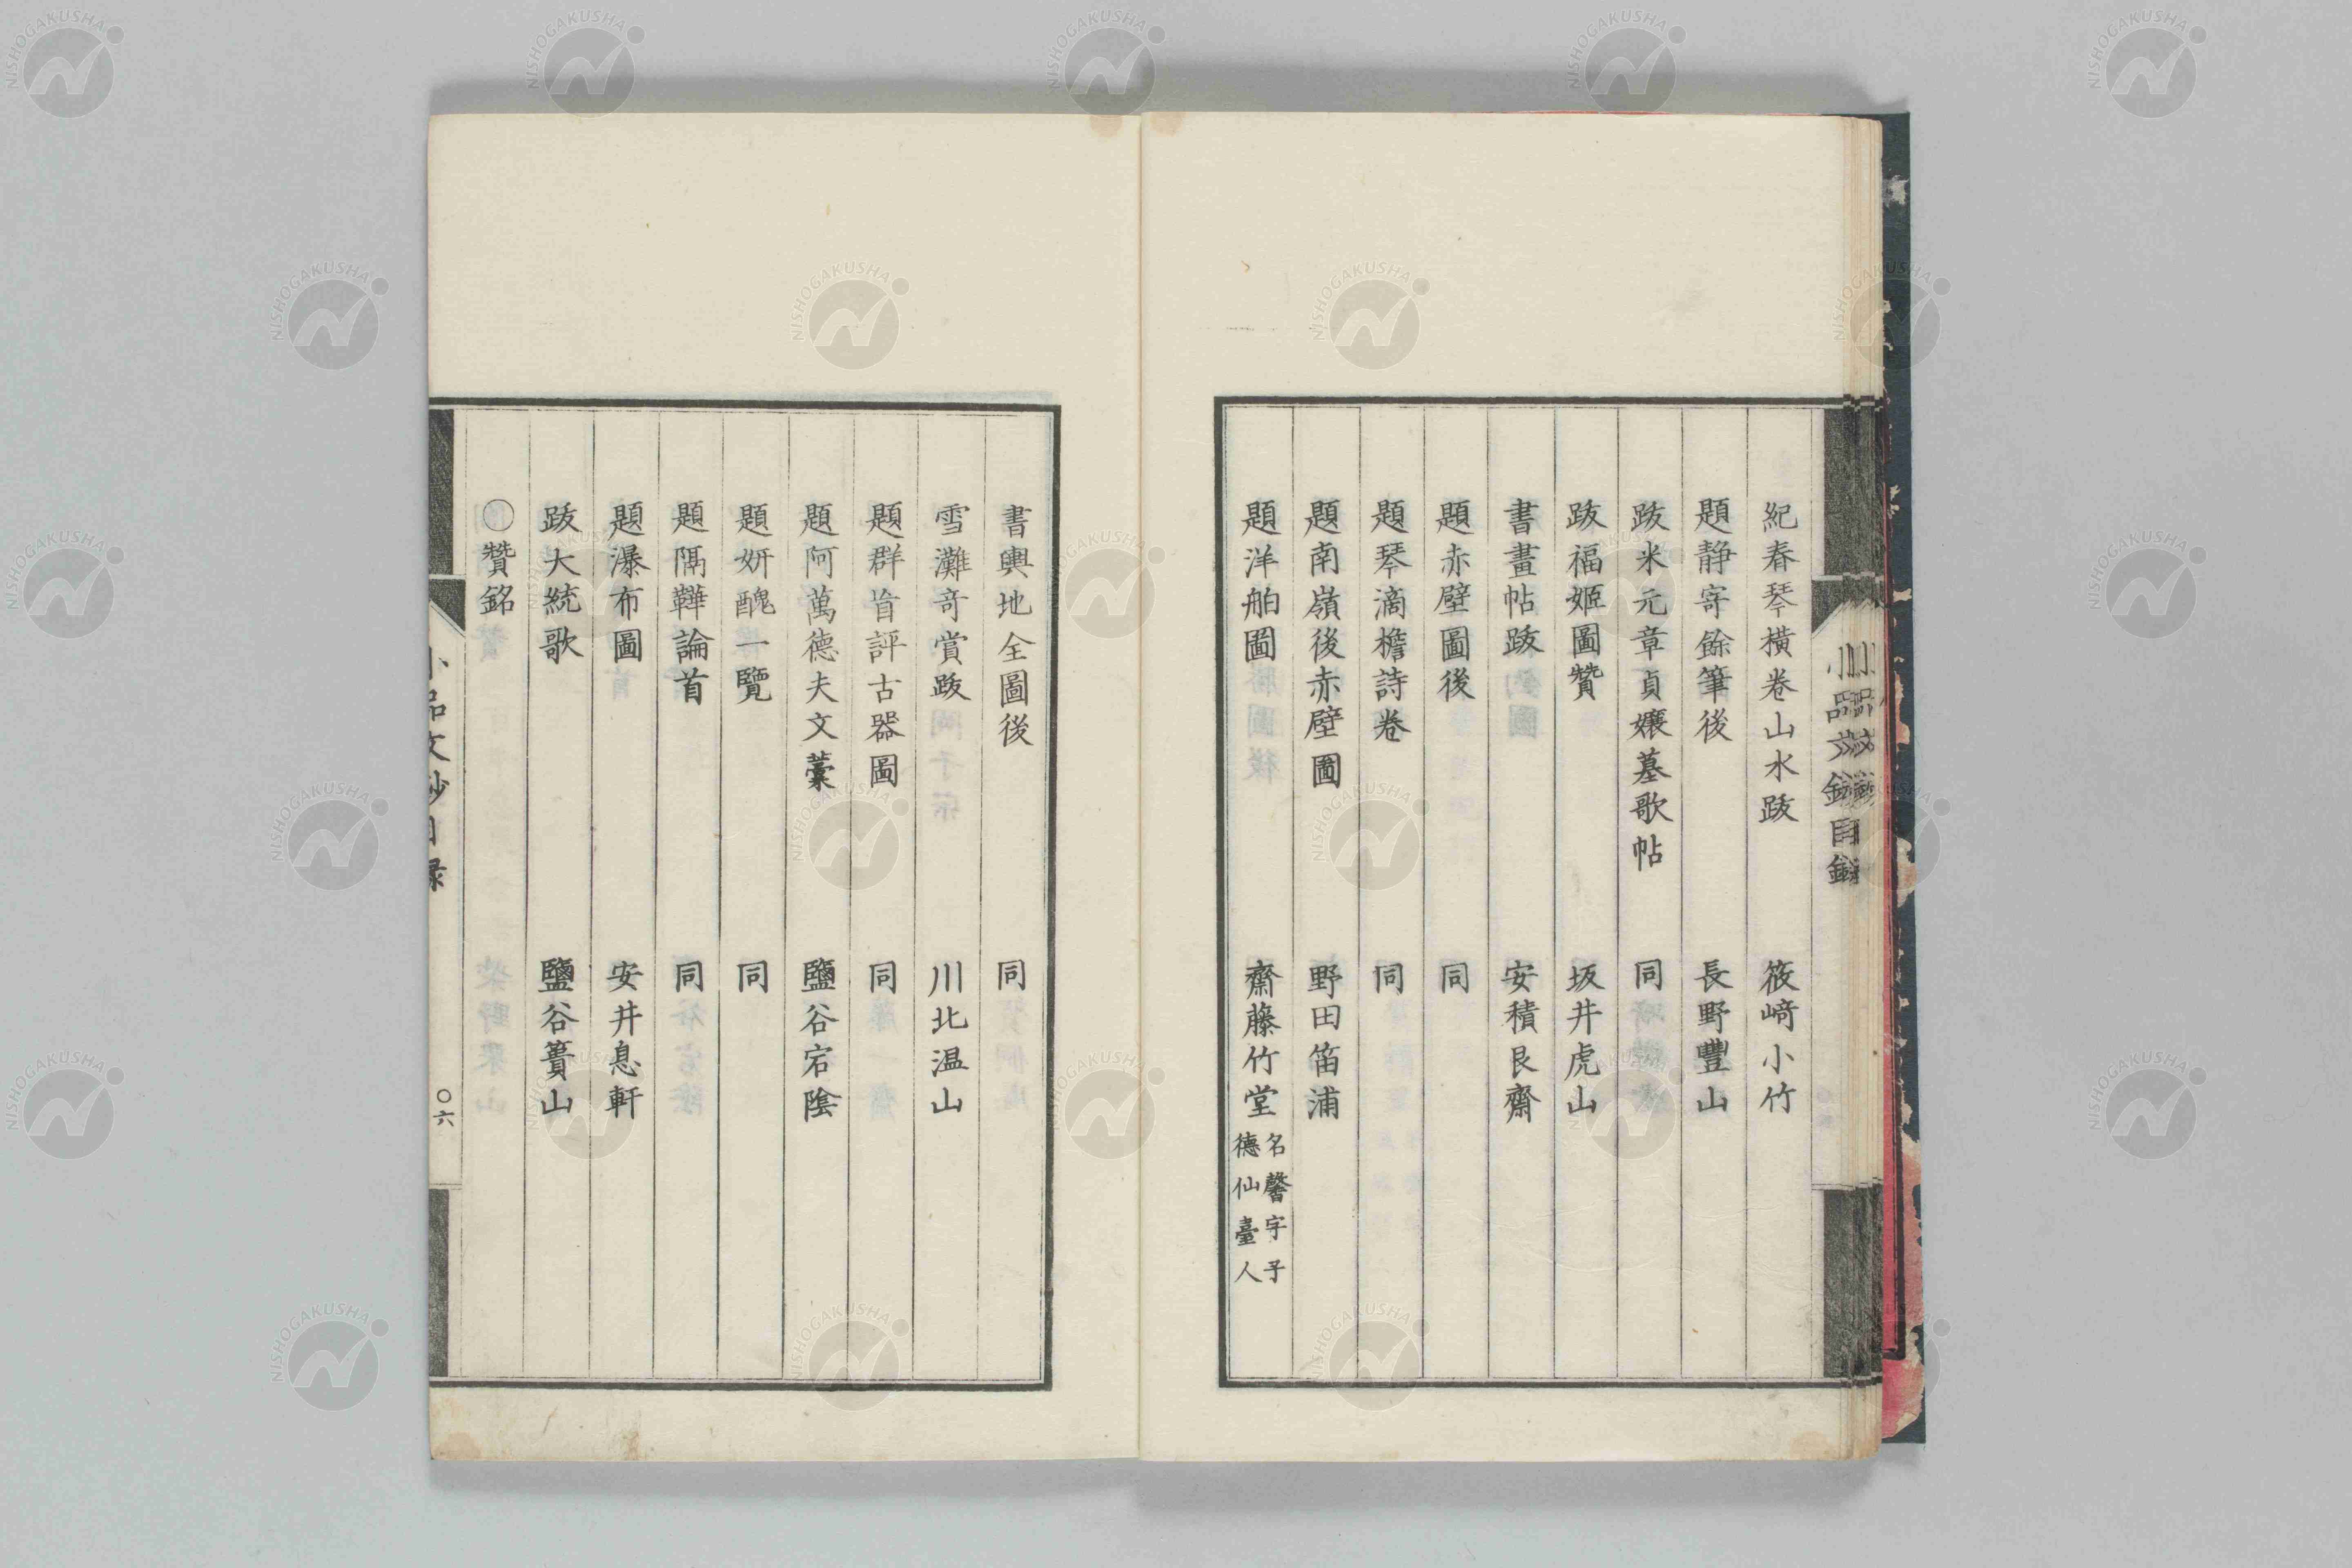 紀春琴横卷山水跋 筱﨑小竹
題静寄餘筆後 長野豐山
跋米元章貞孃墓歌帖 同
跋福姬圖贊 坂井虎山
書畫帖跋 安積艮齋
題赤壁圖後 同
題琴滴檐詩卷 同
題南嶺後赤壁圖 野田笛浦
題洋舶圖 齋藤竹堂 名馨字子德仙臺人
書輿地全圖後 同
雪灘奇賞跋 川北温山
題群盲評古器圖 同
題阿萬德夫文藁 鹽谷宕陰
題妍醜一覽 同
題隔鞾論首 同
題瀑布圖 安井息軒
跋大統歌 鹽谷簣山
○贊銘
小品文鈔目录
○六
NISHOGAKUSHA